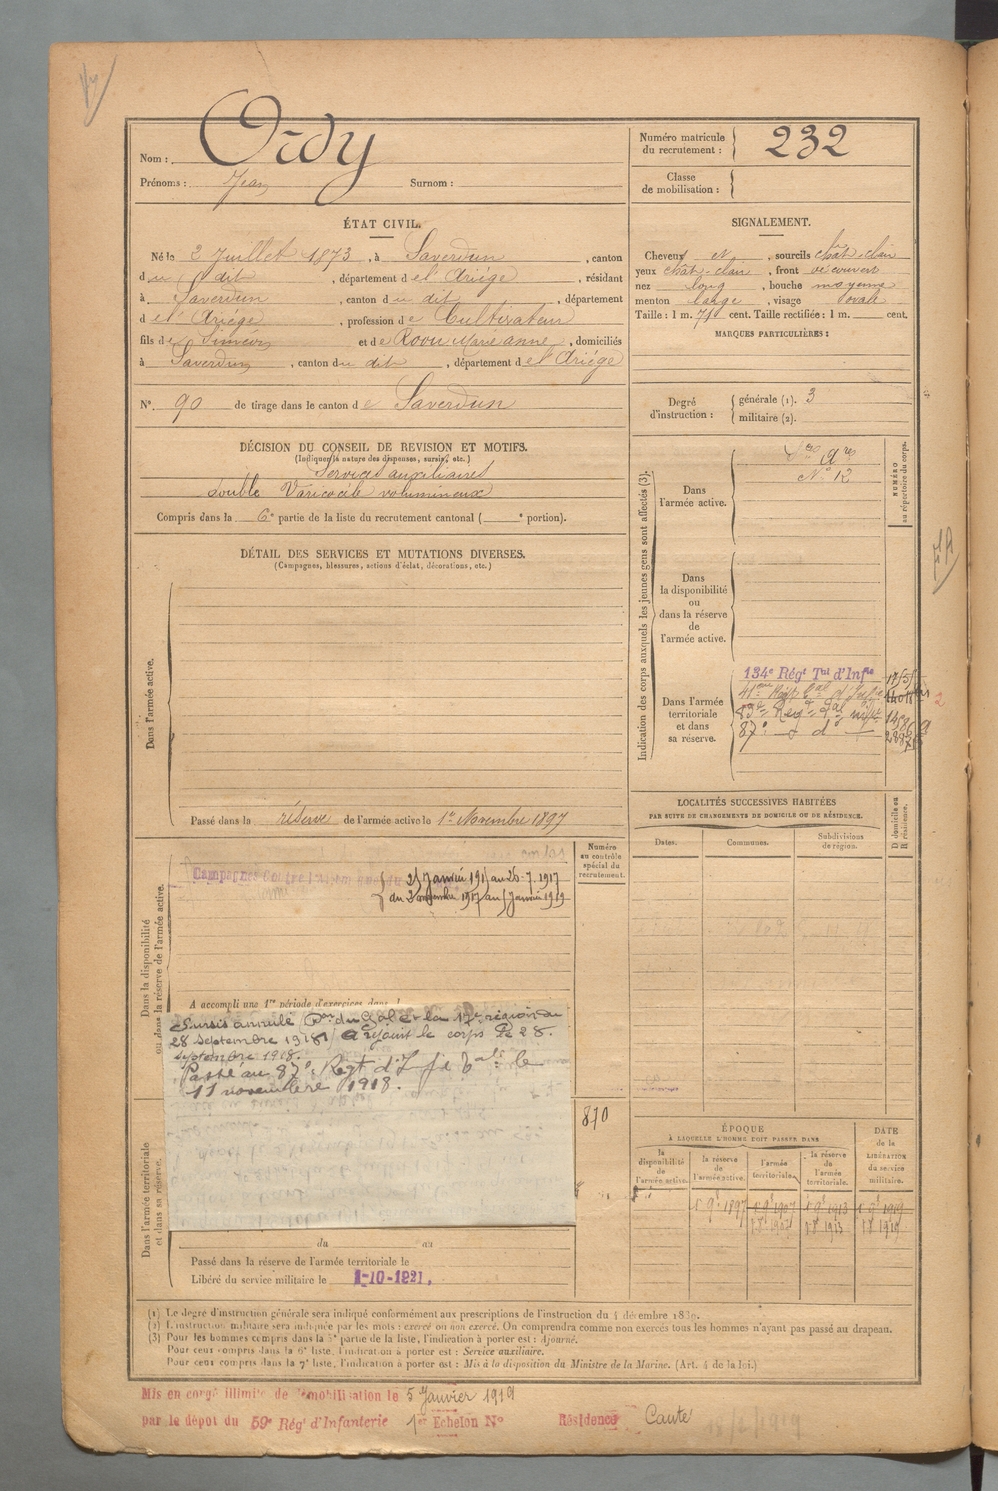 Nom : Ordy
Prénoms : Jean Surnom :
Numéro matricule du recrutement : 232
Classe de mobilisation :
ÉTAT CIVIL.
Né le 2 Juillet 1873, à Saverdun, canton
du dit, département de l'Ariège, résidant
à Saverdun, canton du dit, département
de l'Ariège, profession de Cultivateur
fils de Siméon et de Marie anne, domiciliés
à Saverdun, canton du dit, département de l'Ariége
N° 90 de tirage dans le canton de Saverdun
SIGNALEMENT.
Cheveux N, sourcils chât-clain
yeux chât-clain, front découvert
nez long, bouche moyenne
menton large, visage ovale
Taille : 1 m. 71 cent. Taille rectifiée : 1 m. cent.
MARQUES PARTICULIÈRES :
Degré d'instruction : générale (1). 3
militaire (2).
DÉCISION DU CONSEIL DE REVISION ET MOTIFS.
(Indiquer la nature des dispenses, sursis, etc.)
Services auxiliaires
double Varicocèle volumineux
Compris dans la 6e partie de la liste du recrutement cantonal ( e portion).
DÉTAIL DES SERVICES ET MUTATIONS DIVERSES.
(Campagnes, blessures, actions d'éclat, décorations, etc.)
Dans l'armée active.
Passé dans la réserve de l'armée active le 1er Novembre 1897
Indication des corps auxquels les jeunes gens sont affectés (3).
NUMÉRO au répertoire du corps.
Dans l'armée active.
N° 12
Dans la disponibilité ou dans la réserve de l'armée active.
Dans l'armée territoriale et dans sa réserve.
134e Régt Tal d'Infie
87e d°
LOCALITÉS SUCCESSIVES HABITÉES
PAR SUITE DE CHANGEMENTS DE DOMICILE OU DE RÉSIDENCE.
Dates. Communes. Subdivisions de région.
D domicile ou R résidence.
Dans la disponibilité ou dans la réserve de l'armée active.
Numéro au contrôle spécial du recrutement.
Campagnes Contre l'Allemagne du
au 26-7-1917
A accompli une 1re période d'exercices dans l
Sursis annulé
28 septembre 1918 A rejoint le corps le 28
septembre 1918.
Passé au 87e Régt d'Infie Tale le
11 novembre 1918.
870
Dans l'armée territoriale et dans sa réserve.
du au
Passé dans la réserve de l'armée territoriale le
Libéré du service militaire le 1-10-1921.
ÉPOQUE
À LAQUELLE L'HOMME DOIT PASSER DANS
la disponibilité de l'armée active. la réserve de l'armée active. l'armée territoriale. la réserve de l'armée territoriale.
DATE de la LIBÉRATION du service militaire.
(1) Le degré d'instruction générale sera indiqué conformément aux prescriptions de l'instruction du 4 décembre 1889.
(2) L'instruction militaire sera indiquée par les mots : exercé ou non exercé. On comprendra comme non exercés tous les hommes n'ayant pas passé au drapeau.
(3) Pour les hommes compris dans la 5e partie de la liste, l'indication à porter est : Ajourné.
Pour ceux compris dans la 6e liste, l'indication à porter est : Service auxiliaire.
Pour ceux compris dans la 7e liste, l'indication à porter est : Mis à la disposition du Ministre de la Marine. (Art. 4 de la loi.)
Mis en congé illimité de démobilisation le 5 Janvier 1919
par le dépot du 59e Régt d'Infanterie 1er Echelon N° Résidence Canté